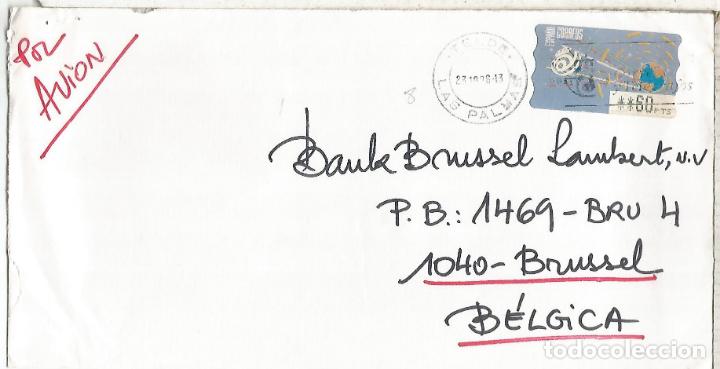 Por
AVION
TELDE
LAS PALMAS
ESPAÑA CORREOS
**60 PTS
8
Bank Brussel Lambert, N.V
P.B.: 1469-BRU 4
1040-Brussel
BÉLGICA
todocoleccion